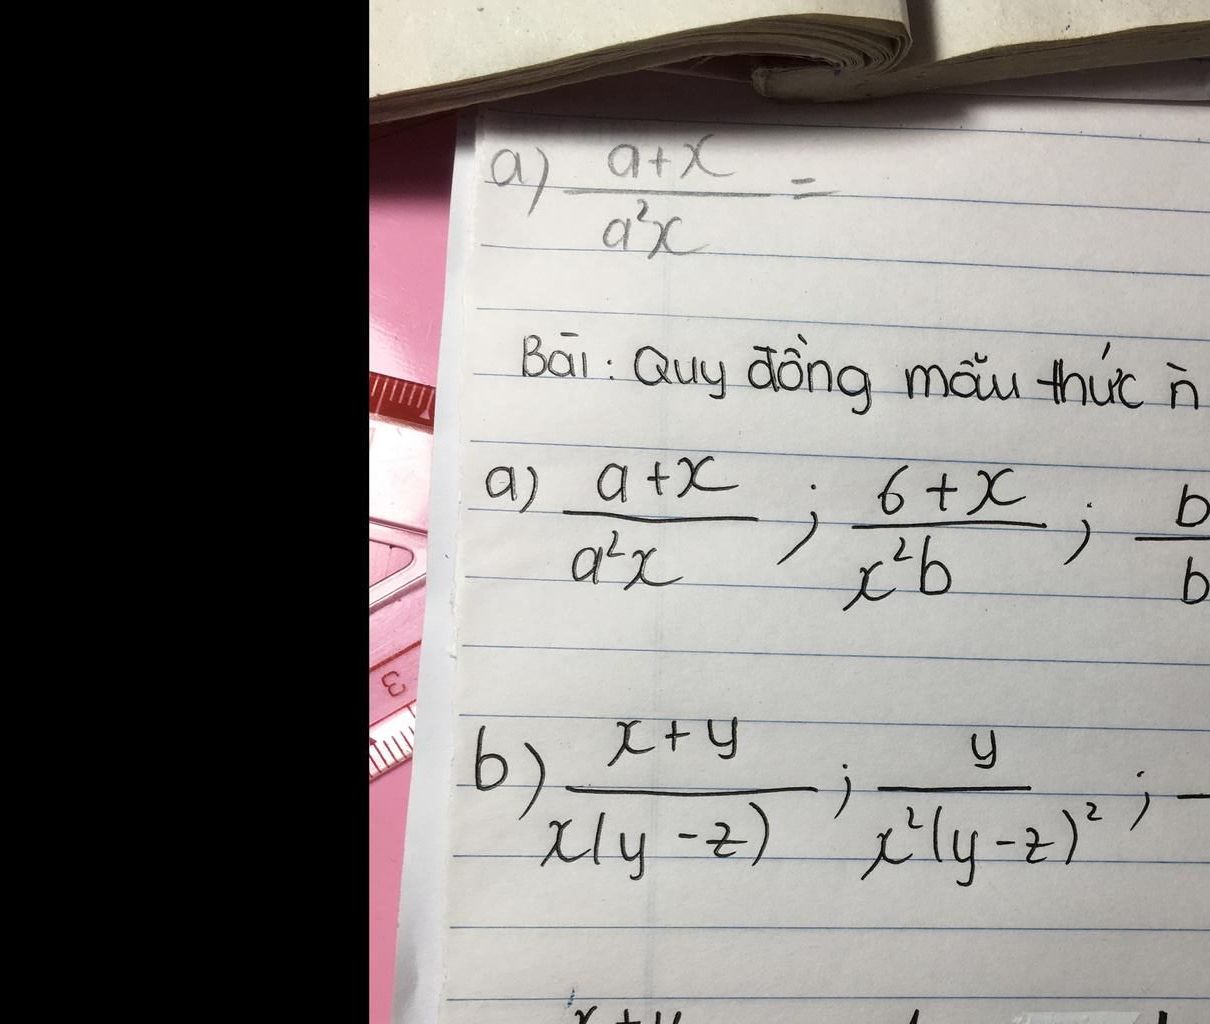 a) a+x / a²x =
Bài: Quy đồng mẫu thức
a) a+x / a²x ; 6+x / x²b ; b / b
b) x+y / x(y-z) ; y / x²(y-z)² ;
3